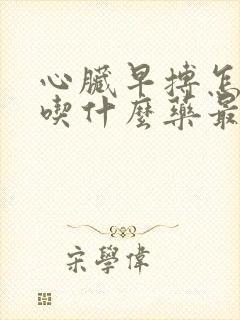 心臟早搏怎
喫什麼藥最
宋學偉